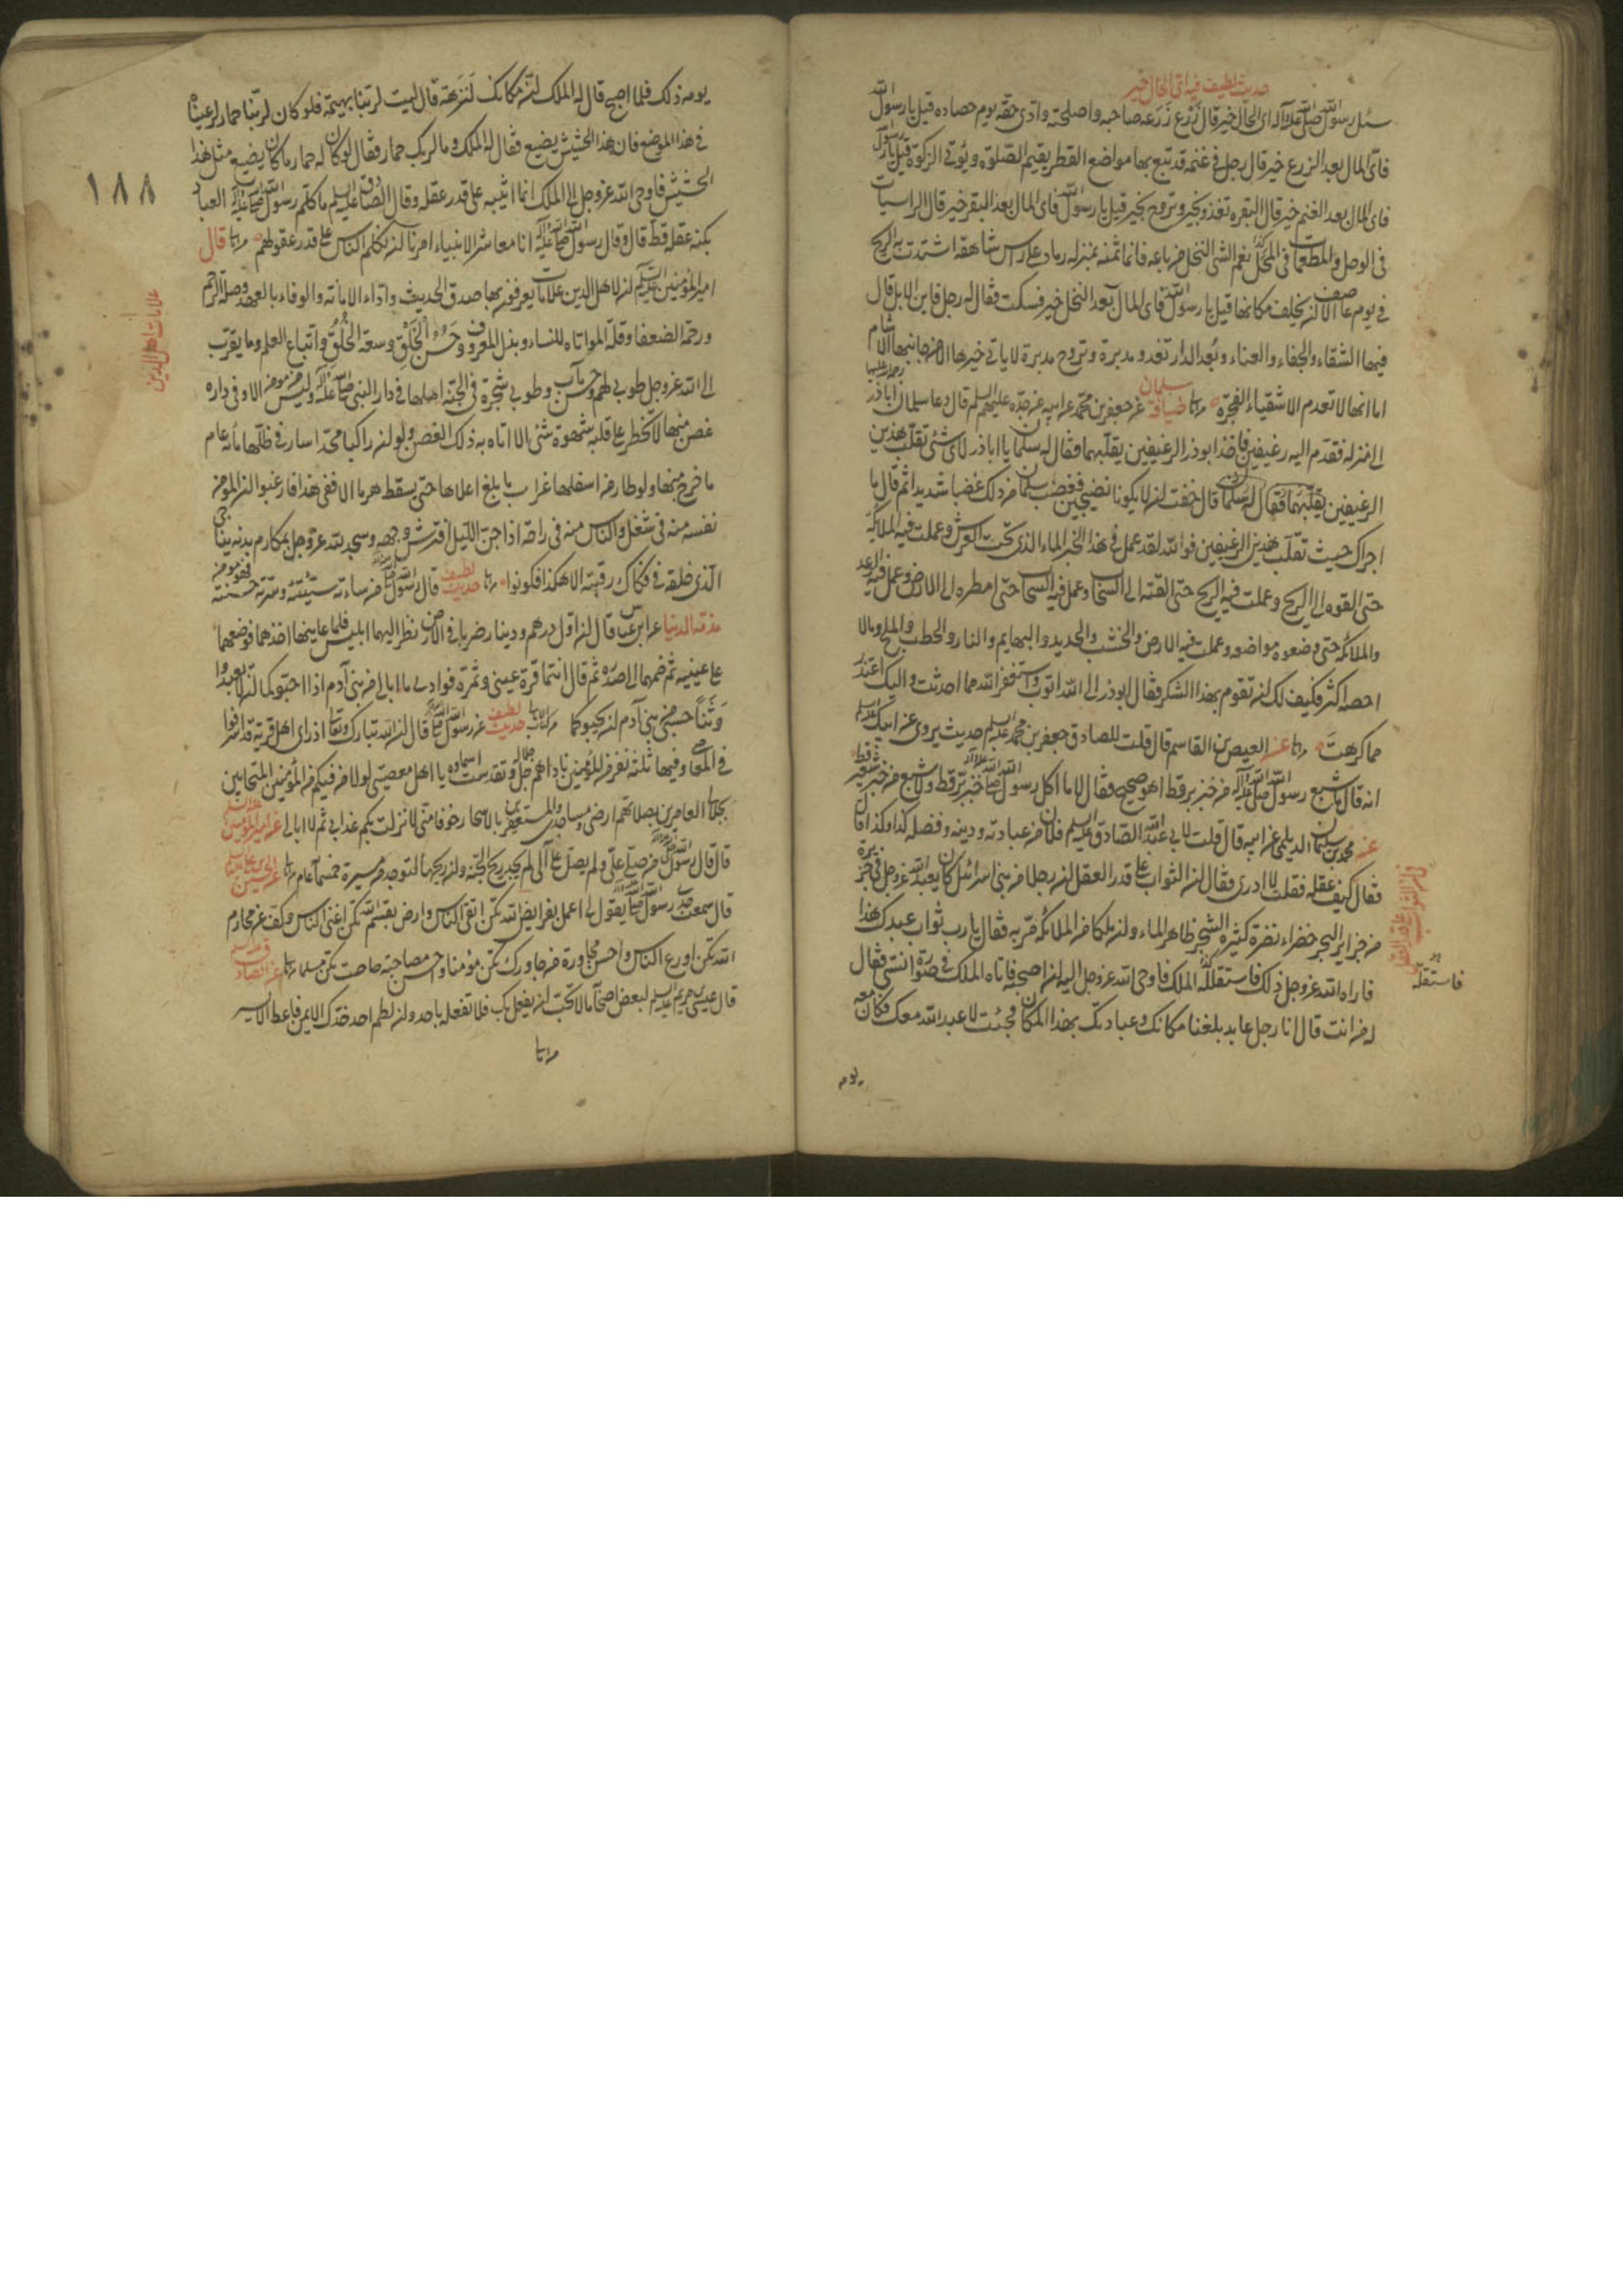 حديث لطيف فيه اى المال خير
سئل رسول الله صلى الله عليه وآله اى المال خير قال زَرْع زَرَعه صاحبه واصلحه وادى حقه يوم حصاده قيل يا رسول الله
فاى المال بعد الزرع خير قال رجل فى غنمه قد تبع بها مواضع القطر يقيم الصلوة ويؤتى الزكوة قيل يا رسول
فاى المال بعد الغنم خير قال البقره تغذو بخير وتروح بخير قيل يا رسول الله فاى المال بعد البقر خير قال الراسيات
فى الوحل والمطعمات فى المَحْل نعم الشئ النخل من باعه فانما ثمنه بمنزله رماد على راس شاهقه اشتدت به الريح
فى يوم عاصف الا ان يخلف مكانها قيل يا رسول الله فاى المال بعد النخل خير فسكت فقال له رجل فاين الابل قال
فيها الشقاء والجفاء والعناء وبُعد الدار تغدو مدبرة وتروح مدبرة لا ياتى خيرها الا من جانبها الاشام
اما انها لا تعدم الاشقياء الفجرة ضيافة سلمان عن جعفر بن محمد عن ابيه عن جده عليهم السلم قال دعا سلمان اباذر رحمة الله عليهما
الى منزله فقدم اليه رغيفين فاخذ ابوذر الرغيفين يقلبهما فقال له سلمان يا اباذر لاى شئ تقلب هذين
الرغيفين قال خفت ان لا يكونا نضيجين فغضب سلمان من ذلك غضبا شديدا ثم قال ما
اجراك حيث تقلب هذين الرغيفين فوالله لقد عمل فى هذا الخبز الماء الذى تحت العرش وعملت فيه الملائكة
حتى القوه الى الريح وعملت فيه الريح حتى القته الى السحاب وعمل فيه السحاب حتى امطره الى الارض وعمل فيه الرعد
والملائكة حتى وضعوه مواضعه وعملت فيه الارض والخشب والحديد والبهايم والنار والحطب والملح ومالا
احصه اكثر فكيف لك ان تقوم بهذا الشكر فقال ابوذر الى الله اتوب واستغفر الله مما احدثت واليك اعتذر
مما كرهتَ عنه العيص بن القاسم قال قلت للصادق جعفر بن محمد عليه السلم حديث يروى عن ابيك عليه السلم
انه قال ما شبع رسول الله صلى الله عليه وآله من خبز بر قط اهو صحيح فقال لا ما اكل رسول الله خبز بر قط ولا شبع من خبز شعير قط
عنه محمد بن سليمان الديلمى عن ابيه قال قلت لابى عبد الله الصادق عليه السلم فلان من عبادته ودينه وفضله كذا وكذا قال
فقال كيف عقله فقلت لا ادرى فقال ان الثواب على قدر العقل ان رجلا من بنى اسرائيل كان يعبد الله عز وجل فى جزيرة
من جزاير البحر خضراء نضرة كثيرة الشجر ظاهر الماء وان ملكا من الملائكة مرّ به فقال يا رب ارنى ثواب عبدك هذا
فاراه الله عز وجل ذلك فاستقله الملك فاوحى الله عز وجل اليه ان اصحبه فاتاه الملك فى صورة انسى فقال
له من انت قال انا رجل عابد بلغنا مكانك وعبادتك بهذا المكان فجئت لاعبد الله معك فكان معه
فاستقله
يومه
يومه ذلك فلما اصبح قال له الملك ان مكانك لَنَزِهَة قال ليت لربنا بهيمة فلو كان لربنا حمار لرعيناه
فى هذا الموضع فان هذا الحشيش يضيع فقال له الملك وما لربك حمار فقال لو كان له حمار ما كان يضيع مثل هذا
الحشيش فاوحى الله عز وجل الى الملك انما اثيبه على قدر عقله وقال الصادق عليه السلم ما كلم رسول الله العباد
بكنه عقله قط قال وقال رسول الله صلى الله عليه وآله انا معاشر الانبياء امرنا ان نكلم الناس على قدر عقولهم قال
امير المؤمنين عليه السلم ان لاهل الدين علامات يعرفون بها صدق الحديث واداء الامانة والوفاء بالعهد وصلة الرحم
ورحمة الضعفا وقلة المواتاه للنساء وبذل المعروف وحُسْنُ الخُلْقِ وسعة الخُلُقِ واتباع العلم وما يقرب
الى الله عز وجل طوبى لهم وحسن مآب وطوبى شجرة فى الجنة اصلها فى دار النبى صلى الله عليه وآله وليس من مومن الا وفى داره
غصن منها لا يخطر على قلبه شهوة شئ الا اتاه به ذلك الغصن ولو ان راكبا مجدا سار فى ظلها مائه عام
ما خرج منها ولو طار من اسفلها غراب ما بلغ اعلاها حتى يسقط هرما الا ففى هذا فارغبوا ان المؤمن
نفسه منه فى شغل والناس منه فى راحة اذا جن الليل افترش وجهه وسجد لله عز وجل بمكارم بدنه يناجى
الذى خلقه فى فكاك رقبته الا هكذا فكونوا حديث لطيف قال رسول الله من ساءته سيئته وسرته حسنته فهو مومن
مذمة الدنيا عن ابن عباس قال ان اول درهم ودينار ضربا فى الارض نظر اليهما ابليس فلما عاينهما اخذهما فوضعهما
على عينيه ثم ضمهما الى صدره ثم قال انتما قرة عينى وثمرة فوادى ما ابالى من بنى آدم اذا احبوكما ان لا يعبدوا
وَثَنًا حسبى من بنى آدم ان يحبوكما حديث لطيف عن رسول الله قال ان الله تبارك وتعالى اذا راى اهل قرية قد اسرفوا
فى المعاصى وفيها ثلثة نفر من المؤمنين ناداهم جل جلاله وتقدست اسماوه يا اهل معصيتى لولا من فيكم من المؤمنين المتحابين
بجلالى العامرين بصلاتهم ارضى ومساجدى والمستغفرين بالاسحار خوفا منى لانزلت بكم عذابى ثم لا ابالى عن امير المؤمنين
قال قال رسول الله من صلى علىّ ولم يصل على آلى لم يجد ريح الجنة وان ريحها لتوجد من مسيرة خمسمائة عام
قال سمعت جدى رسول الله يقول لى اعمل بفرايض الله تكن اتقى الناس وارض بقسم الله تكن اغنى الناس وكف عن محارم
الله تكن اورع الناس واحسن مجاورة من جاورك تكن مؤمنا واحسن مصاحبة من صاحبك تكن مسلما عن الصادق
قال عيسى بن مريم عليه السلم لبعض اصحابه ما لا تحب ان يفعل بك فلا تفعله باحد وان لطم احد خدك الايمن فاعط الايسر
علامات اهل الدين
١٨٨